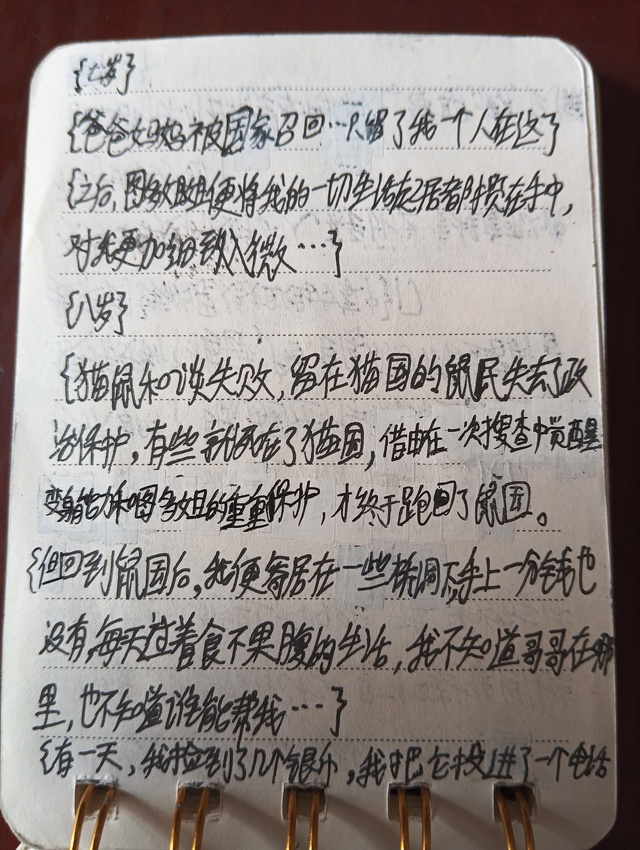 {七岁}
{爸爸妈妈被国家召回…只留了我一个人在这了
{之后,图多姐便将我的一切生活起居都肩负在手中,
对我更加细致入微…}
{八岁}
{猫鼠和谈失败,留在猫国的鼠民失去了政
治保护,有些就死在了猫国,借由在一次搜查中觉醒
变身能力和图多姐的重重保护,才终于跑回了鼠国。
{但回到鼠国后,我便寄居在一些桥洞下,手上一分钱也
没有,每天过着食不果腹的生活,我不知道哥哥在哪
里,也不知道谁能帮我…}
{有一天,我捡到了几个银币,我把它投进了一个电话